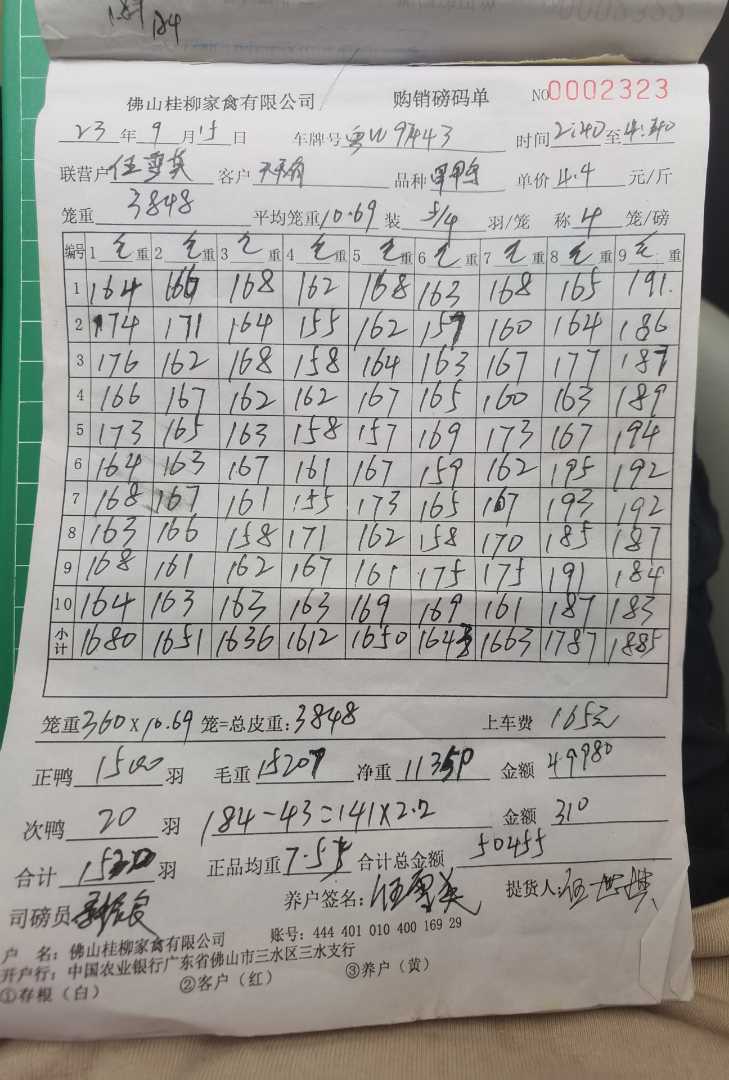 184
佛山桂柳家禽有限公司 购销磅码单 NO 0002323
23 年 9 月 15 日 车牌号 粤W9443 时间 2:40 至 4:40
联营户 伍雪英 客户 品种 单价 4.4 元/斤
笼重 3848 平均笼重 10.69 装 5/4 羽/笼 称 4 笼/磅
编号 1 毛 重 2 毛 重 3 毛 重 4 毛 重 5 毛 重 6 毛 重 7 毛 重 8 毛 重 9 毛 重
1 164 166 168 162 168 163 168 165 191
2 174 171 164 155 162 157 160 164 186
3 176 162 168 158 164 163 167 177 187
4 166 167 162 162 167 165 160 163 189
5 173 165 163 158 157 169 173 167 194
6 164 163 167 161 167 159 162 195 192
7 168 167 161 155 173 165 167 193 192
8 163 166 158 171 162 158 170 185 187
9 168 161 162 167 161 175 175 191 184
10 164 163 163 163 169 169 161 187 183
小计 1680 1651 1636 1612 1650 1643 1663 1787 1885
笼重 360 X 10.69 笼=总皮重: 3848 上车费 165元
正鸭 1500 羽 毛重 15207 净重 11359 金额 49980
次鸭 20 羽 184-43=141×2.2 金额 310
合计 羽 正品均重 7.57 合计总金额 50455
司磅员 养户签名: 伍雪英 提货人:
户 名: 佛山桂柳家禽有限公司 账号: 444 401 010 400 169 29
开户行: 中国农业银行广东省佛山市三水区三水支行
①存根(白) ②客户(红) ③养户(黄)